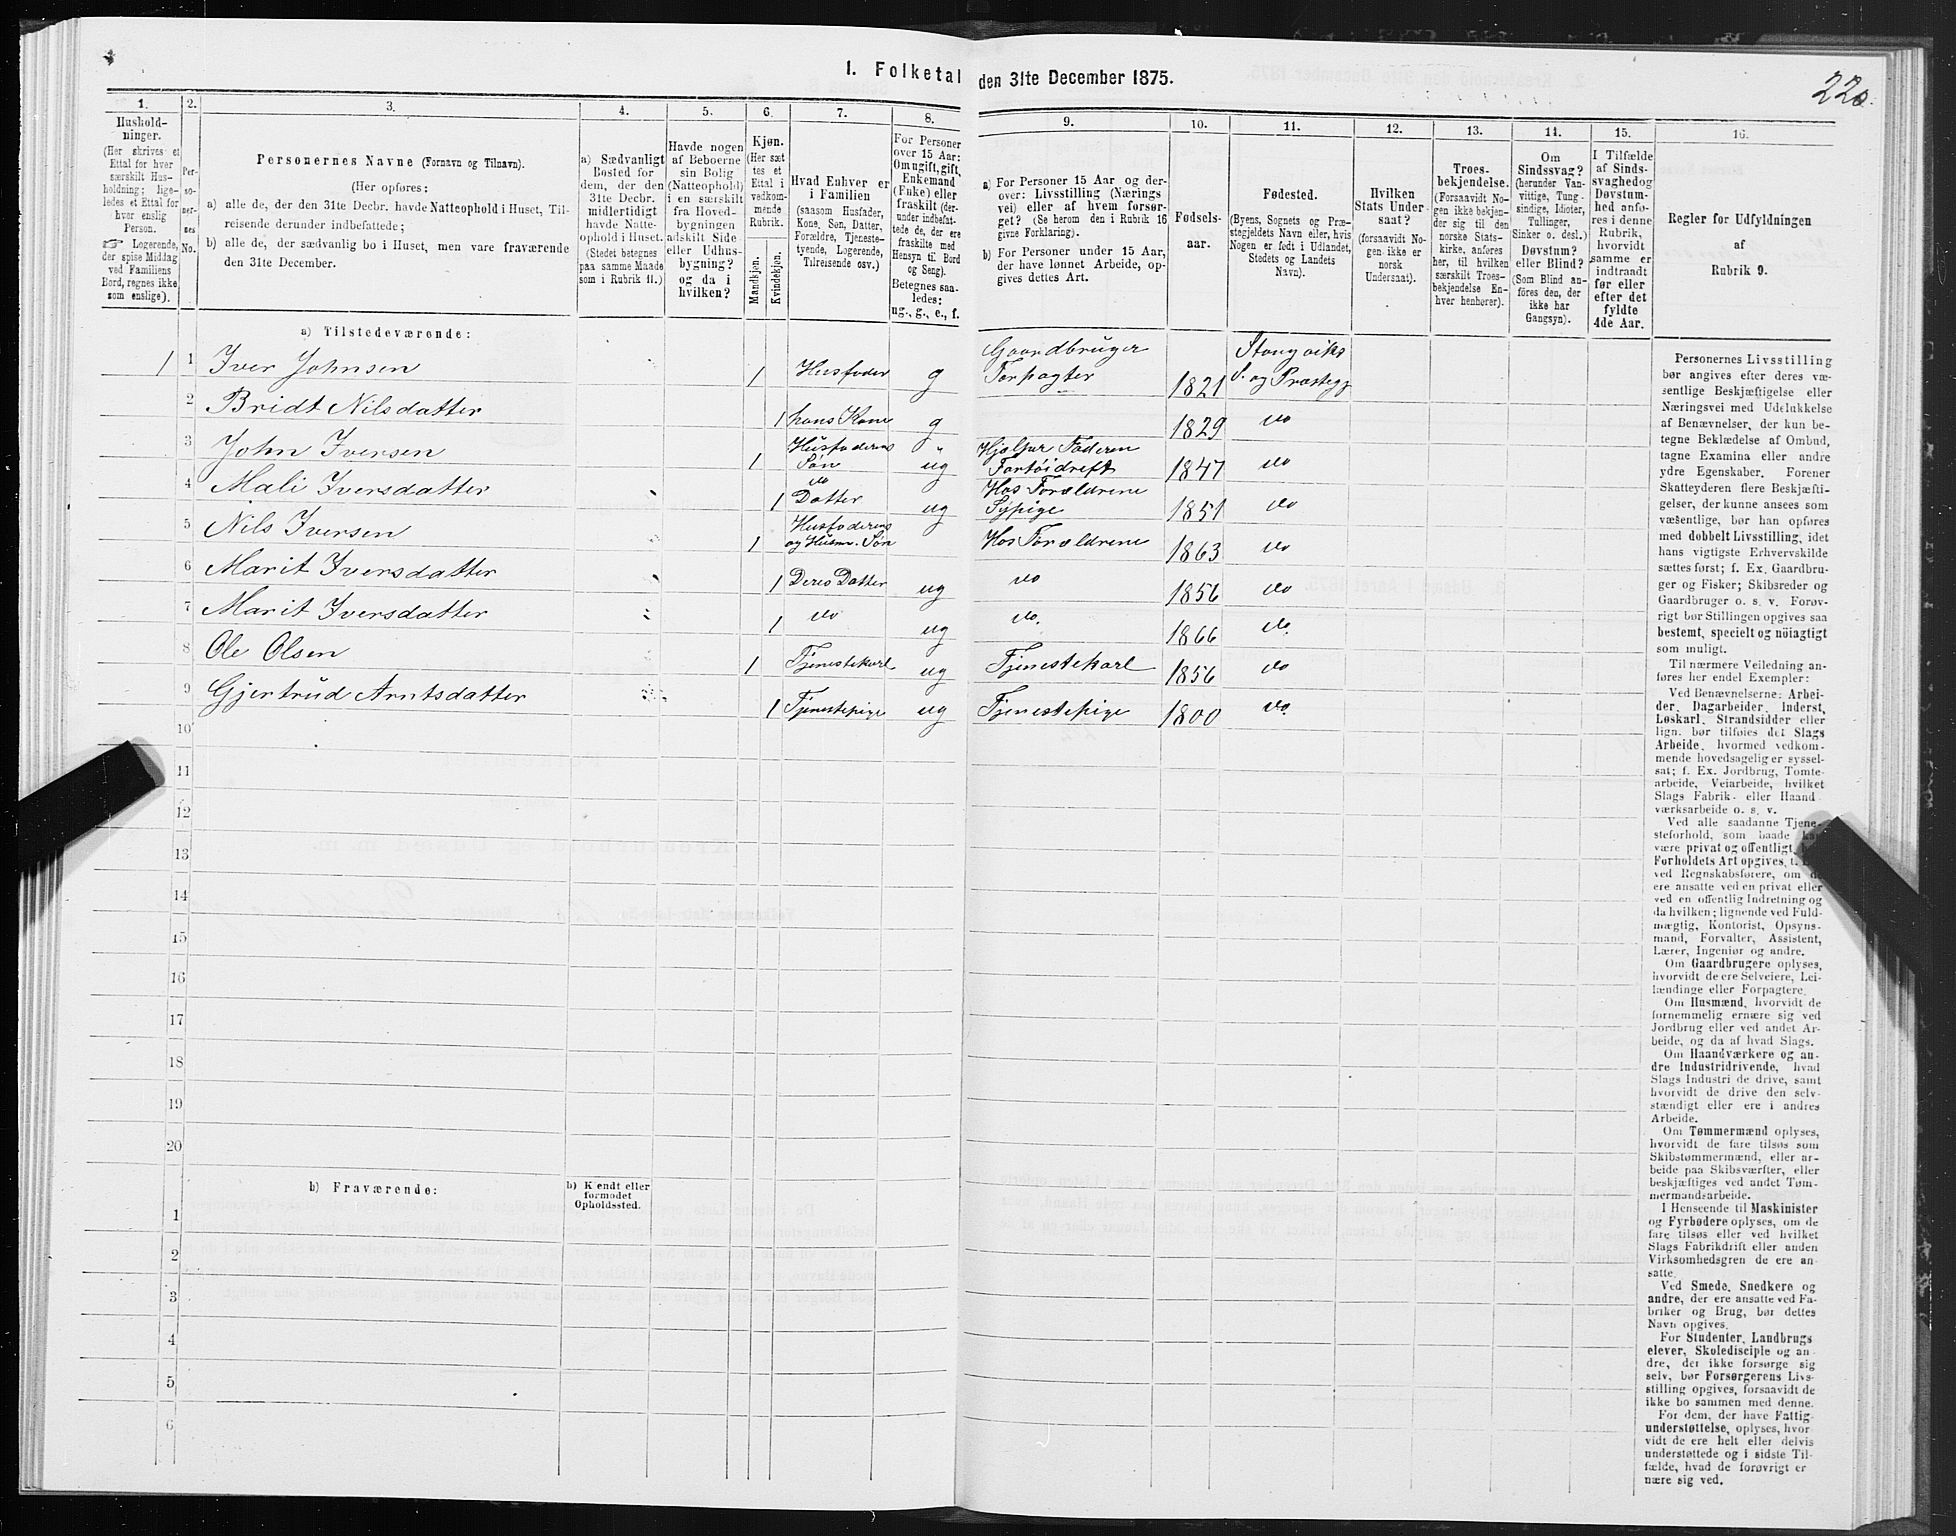 1. Folketal den 31te December 1875.
220.
1.
2.
3.
4.
5.
6.
7.
8.
9.
10.
11.
12.
13.
14.
15.
16.
Hushold-
ninger.
(Her skrives et
Ettal for hver
særskilt Hus-
holdning; lige-
ledes et Ettal for
hver enslig
Person.
☞ Logerende,
der spise Middag
ved Familiens
Bord, regnes ikke
som enslige).
Per-
so-
ner-
nes
No.
Personernes Navne (Fornavn og Tilnavn).
(Her opføres:
a) alle de, der den 31te Decbr. havde Natteophold i Huset, Til-
reisende derunder indbefattede;
b) alle de, der sædvanlig bo i Huset, men vare fraværende
den 31te December.
a) Sædvanligt
Bosted for
dem, der den
31te Decbr.
midlertidigt
havde Natte-
ophold i Huset.
(Stedet betegnes
paa samme Maade
som i Rubrik 11.)
Havde nogen
af Beboerne
sin Bolig
(Natteophold)
i en særskilt
fra Hoved-
bygningen
adskilt Side-
eller Udhus-
bygning?
og da i
hvilken?
Kjøn.
(Her sæt
tes et
Ettal i
vedkom-
mende
Rubrik.
Mandkjøn.
Kvindekjøn.
Hvad Enhver er
i Familien
(saasom Husfader,
Kone, Søn, Datter,
Forældre, Tjeneste-
tyende, Logerende,
Tilreisende osv.)
For Personer
over 15 Aar:
Om ugift, gift,
Enkemand
(Enke) eller
fraskilt (der-
under indbefat-
tede de, der ere
fraskilte med
Hensyn til Bord
og Seng).
Betegnes saa-
ledes:
ug., g., e., f.
a) For Personer 15 Aar og der-
over: Livsstilling (Nærings
vei) eller af hvem forsør-
get? (Se herom den i Rubrik 16
givne Forklaring).
b) For Personer under 15 Aar,
der have lønnet Arbeide, op-
gives dettes Art.
Fødsels-
aar.
Fødested.
(Byens, Sognets og Præ-
stegjeldets Navn eller, hvis
Nogen er født i Udlandet,
Stedets og Landets
Navn).
Hvilken
Stats Under
saat?
(forsaavidt No-
gen ikke er
norsk
Undersaat).
Troes-
bekjendelse.
(Forsaavidt No-
gen ikke bekjen-
der sig til den
norske Stats-
kirke, anføres
her, til hvilken
særskilt Troes-
bekjendelse En-
hver henhører).
Om
Sindssvag?
(herunder Van-
vittige, Tung-
sindige, Idioter,
Tullinger,
Sinker o. desl.)
Døvstum?
eller Blind?
(Som Blind an-
føres den, der
ikke har
Gangsyn).
I Tilfælde
af Sinds-
svaghed og
Døvstum-
hed anfø-
res i denne
Rubrik,
hvorvidt
samme er
indtraadt
før eller
efter det
fyldte
4de Aar.
Regler for Udfyldningen
af
Rubrik 9.
a) Tilstedeværende:
1 1 Iver Johnsen 1 Husfader g Gaardbruger Forpagter 1821 Stangviks S. og Præstegj
2 Bridt Nilsdatter 1 hans Kone g 1829 do
3 John Iversen 1 Husfaderens Søn ug Hjelper Faderen 1847 do
4 Mali Iversdatter 1 do Datter ug Hos Forældrene Sypige 1851 do
5 Nils Iversen 1 Husfaderens og Husm. Søn Hos Forældrene 1863 do
6 Marit Iversdatter 1 Deres Datter ug do 1856 do
7 Marit Iversdatter 1 do ug do. 1866 do.
8 Ole Olsen 1 Tjenestekarl ug Tjenestekarl 1856 do
9 Gjertrud Arntsdatter 1 Tjenestepige ug Tjenestepige 1800 do.
10
11
12
13
14
15
16
17
18
19
20
b) Fraværende:
b) Kendt eller
formodet
Opholdssted.
1
2
3
4
5
6
Personernes Livsstilling
bør angives efter deres væ-
sentlige Beskjæftigelse eller
Næringsvei med Udelukkelse
af Benævnelser, der kun be-
tegne Beklædelse af Ombud,
tagne Examina eller andre
ydre Egenskaber. Forener
Skatteyderen flere Beskjæfti-
gelser, der kunne ansees som
væsentlige, bør han opføres
med dobbelt Livsstilling, idet
hans vigtigste Erhvervskilde
sættes først; f. Ex. Gaardbru-
ger og Fisker; Skibsreder og
Gaardbruger o. s. v. Forøv-
rigt bør Stillingen opgives saa
bestemt, specielt og nöiagtigt
som muligt.
Til nærmere Veiledning an-
føres her endel Exempler:
Ved Benævnelserne: Arbei-
der, Dagarbeider, Inderst,
Løskarl, Strandsidder eller
lign. bør tilføies det Slags
Arbeide, hvormed vedkom-
mende hovedsagelig er syssel-
sat; f. Ex. Jordbrug, Tomte-
arbeide, Veiarbeide, hvilket
Slags Fabrik- eller Haand-
værksarbeide o. s. v.
Ved alle saadanne Tjene-
steforhold, som baade
være privat og offentligt,
Forholdets Art opgives,
ved Regnskabsførere, om
ere ansatte ved en privat eller
ved en offentlig Indretning og
da hvilken; lignende ved Fuld-
mægtig, Kontorist, Opsyns-
mand, Forvalter, Assistent,
Lærer, Ingeniør og andre.
Om Gaardbrugere oplyses,
hvorvidt de ere Selveiere, Lei-
lændinge eller Forpagtere.
Om Husmænd, hvorvidt de
fornemmelig ernære sig ved
Jordbrug eller ved andet Ar-
beide, og da af hvad Slags.
Om Haandværkere og an-
dre Industridrivende, hvad
Slags Industri de drive, samt
hvorvidt de drive den selv-
stændigt eller ere i andres
Arbeide.
Om Tømmermænd oplyses,
hvorvidt de fare tilsøs som
Skibstømmermænd, eller ar-
beide paa Skibsværfter, eller
beskjæftiges ved andet Tøm-
mermandsarbeide.
I Henseende til Maskinister
og Fyrbødere oplyses, om de
fare tilsøs eller ved hvilket
Slags Fabrikdrift eller anden
Virksomhedsgren de ere an-
satte.
Ved Smede, Snedkere og
andre, der ere ansatte ved Fa-
briker og Brug, bør dettes
Navn opgives.
For Studenter, Landbrugs
elever, Skoledisciple og an-
dre, der ikke forsørge sig
selv, bør Forsørgerens Livs-
stilling opgives, forsaavidt de
ikke bo sammen med denne.
For dem, der have Fattig-
understøttelse, oplyses, hvor-
vidt de ere helt eller delvis
understøttede og i sidste Til-
fælde, hvad de forøvrigt er
nære sig ved.